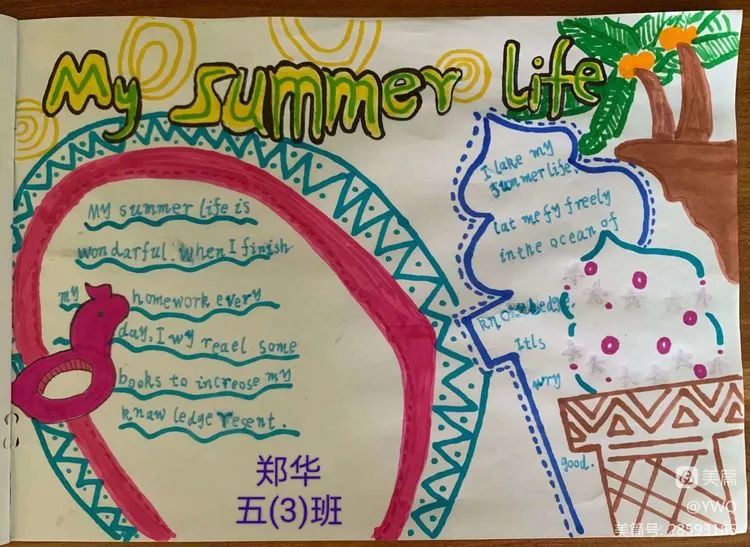 My summer life
My summer life is
wondarful. When I finish
my homework every
day, I wy reael some
books to increose my
knaw ledge resent.
郑华
五(3)班
I lake my
summer life,
lat me fy freely
in the ocean of
knowledge.
Itls
wry
good.
美篇
@YWQ
美篇号: 28593165